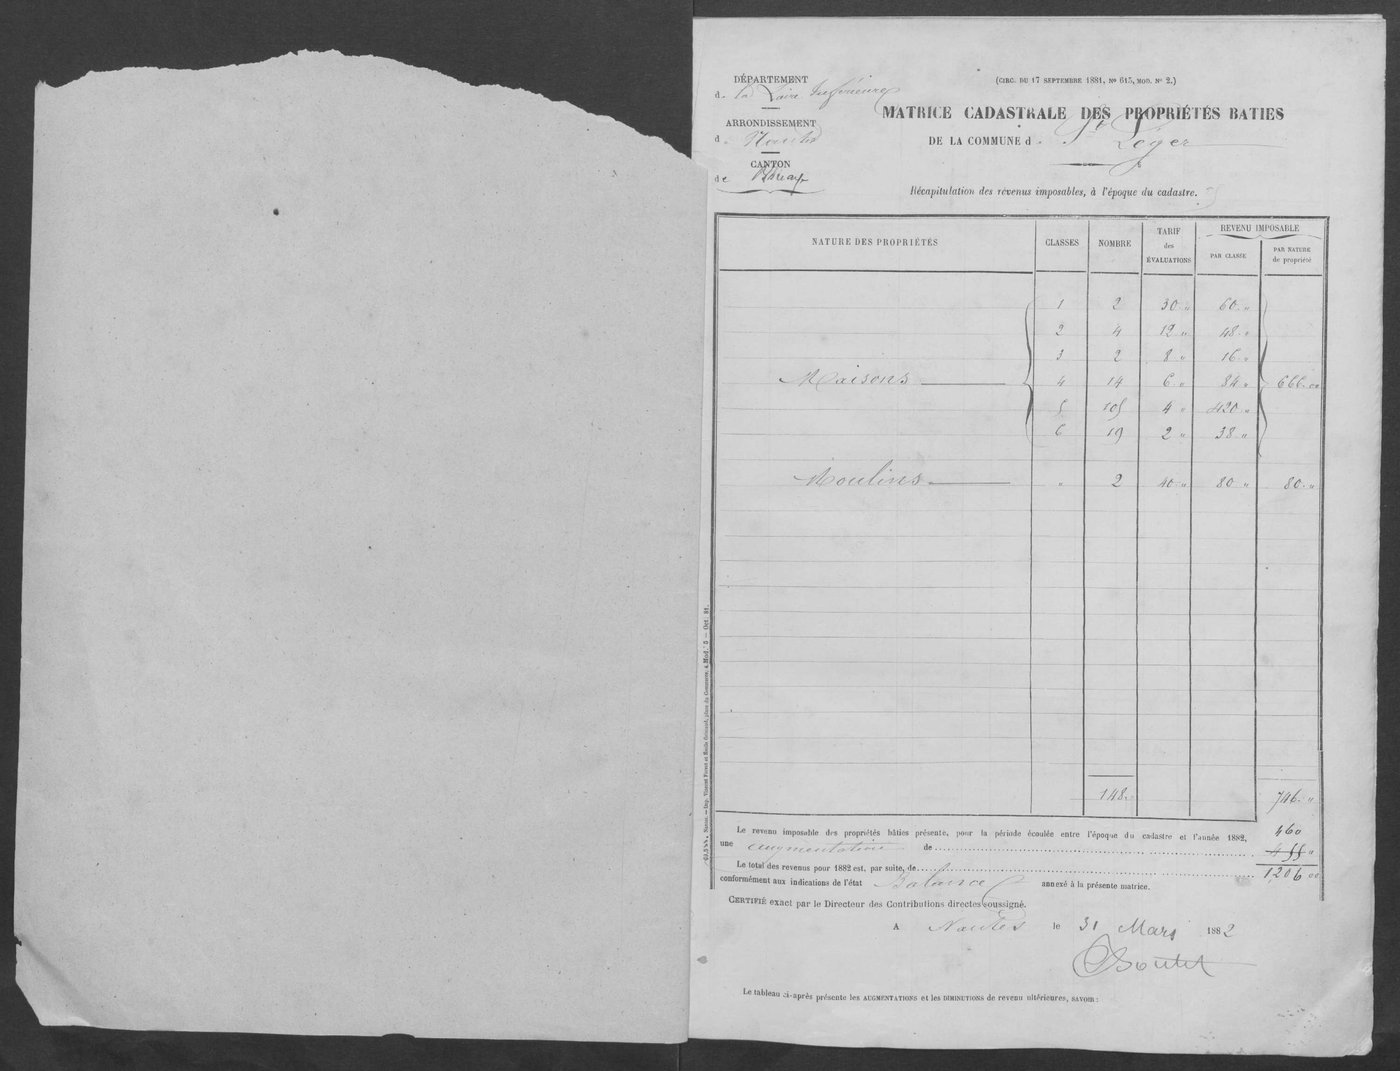 DÉPARTEMENT
de la Loire Inférieure
ARRONDISSEMENT
d Nantes
CANTON
de
(CIRC. DU 17 SEPTEMBRE 1881, Nº 615, MOD. Nº 2.)
MATRICE CADASTRALE DES PROPRIÉTÉS BATIES
DE LA COMMUNE d St Léger
Récapitulation des revenus imposables, à l'époque du cadastre.
NATURE DES PROPRIÉTÉS CLASSES NOMBRE TARIF des ÉVALUATIONS REVENU IMPOSABLE
PAR CLASSE PAR NATURE de propriété
1 2 30 " 60 "
2 4 12 " 48 "
3 2 8 " 16 "
Maisons 4 14 6 " 84 " 666 00
5 105 4 " 420 "
6 19 2 " 38 "
Moulins " 2 40 " 80 " 80 "
148 746 "
Le revenu imposable des propriétés bâties présente, pour la période écoulée entre l'époque du cadastre et l'année 1882, 460
une augmentation de 455 "
Le total des revenus pour 1882 est, par suite, de 1206 00
conformément aux indications de l'état Balance annexé à la présente matrice.
CERTIFIÉ exact par le Directeur des Contributions directes soussigné.
A Nantes le 31 Mars 1882
Le tableau ci-après présente les AUGMENTATIONS et les DIMINUTIONS de revenu ultérieures, SAVOIR :